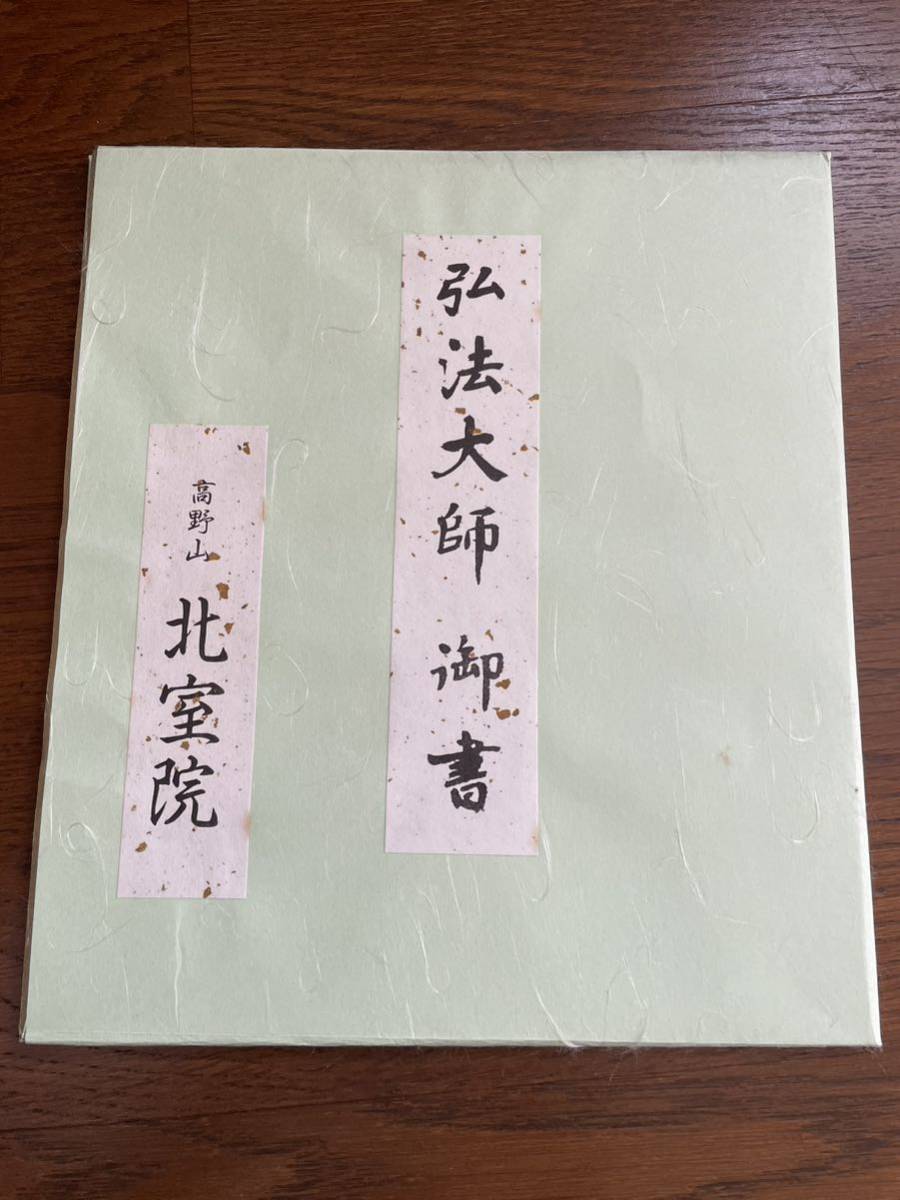 弘法大師 御書
高野山 北室院